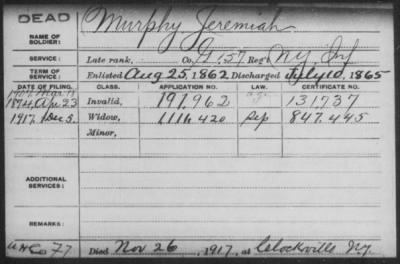 DEAD
Murphy Jeremiah
NAME OF
SOLDIER:
SERVICE: Late rank, Co. G. 157 Reg't N.Y. Inf
TERM OF
SERVICE: Enlisted Aug 25, 1862, Discharged July 10, 1865
DATE OF FILING. CLASS. APPLICATION NO. LAW. CERTIFICATE NO.
1907 Mar 11
1874, Apr 23 Invalid, 191,962 131,737
1917, Dec 5. Widow, 1111420 Sep 847,445
Minor,
ADDITIONAL
SERVICES:
REMARKS:
Died Nov 26, 1917, at Clockville N.Y.